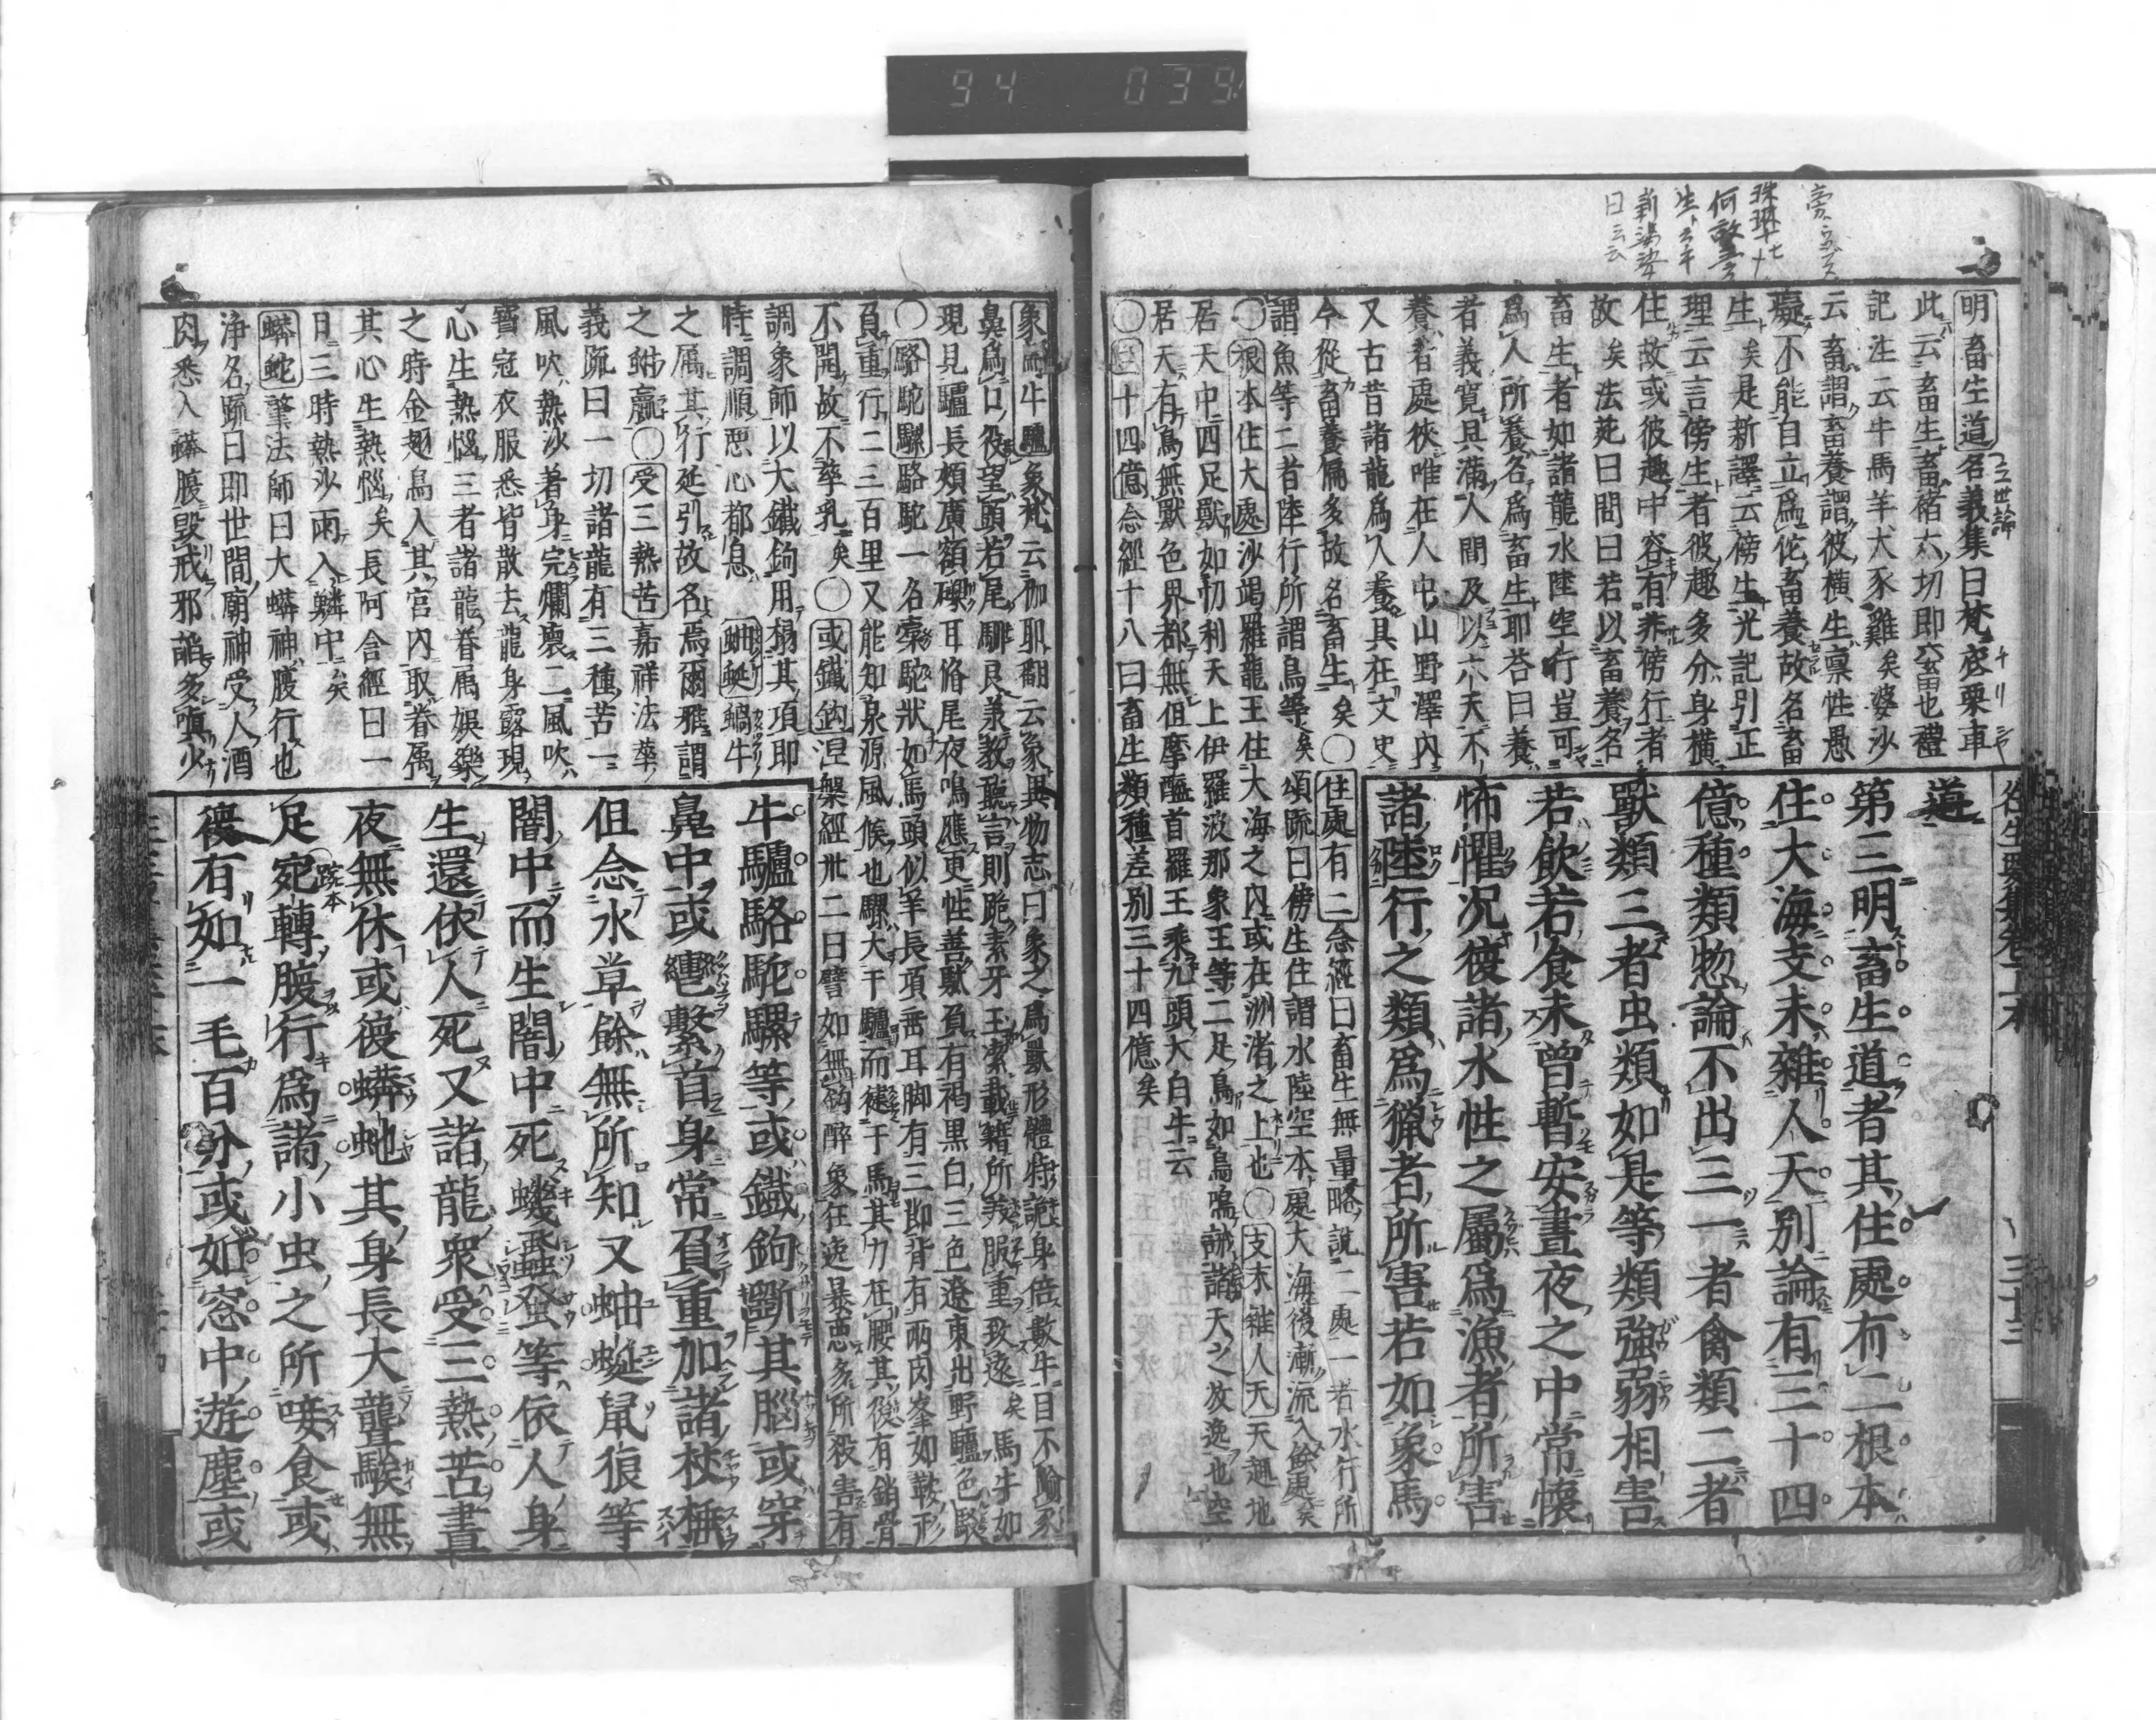 94 039
往生要集卷上本
三十三
明畜生道名義集曰梵底栗車
此云畜生畜褚六切即六畜也禮
記注云牛馬羊犬豕雞矣婆沙
云畜謂畜養謂彼横生禀性愚
癡不能自立爲佗畜養故名畜
生矣是新譯云傍生光記引正
理云言傍生者彼趣多分身横
住故或彼趣中容有非傍行者
故矣法苑曰問曰若以畜養名
畜生者如諸龍水陸空行豈可
爲人所養名爲畜生耶荅曰養
者義寛具滿人間及以六天不
養者處狹唯在人中山野澤内
又古昔諸龍爲人養具在文史
今從畜養偏多故名畜生矣〇住處有二念經曰畜生無量略說二處一者水行所
謂魚等二者陸行所謂鳥等矣頌䟽曰傍生住謂水陸空本處大海後漸流入餘處矣
〇根本住大處沙竭羅龍王住大海之内或在洲渚之上也〇支末雜人天天趣地
居天中四足獸如忉利天上伊羅波那象王等二足鳥如鳥鳴誡諸天之放逸也空
居天有鳥無獸色界都無但摩醯首羅王乘九頭大白牛云
〇三十四億念經十八曰畜生類種差别三十四億矣
道
第三明畜生道者其住處有二根本
住大海支末雜人天别論有三十四
億種類惣論不出三一者禽類二者
獸類三者虫類如是等類強弱相害
若飲若食未曾暫安晝夜之中常懷
怖懼况復諸水性之屬爲漁者所害
諸陸行之類爲獵者所害若如象馬
象馬牛驢象梵云伽耶翻云象異物志曰象之爲獸形體特詭身倍數牛目不踰豕
鼻爲口役望頭若尾馴良羕教聽言則跪素牙玉潔載籍所美服重致遠矣馬牛如
現見驢長頰廣額磔耳脩尾夜鳴應更性善駄負有褐黒白三色遼東出野驢色駁
〇駱駝騾駱駝一名橐駝狀如馬頭似羊長項垂耳脚有三節背有兩肉峯如鞍形
負重行二三百里又能知泉源風候也騾大于驢而健于馬其力在腰其後有銷骨
不開故不孳乳矣〇或鐵鈎涅槃經卅二曰譬如無鈎醉象狂逸暴惡多所殺害有
調象師以大鐵鉤用搨其項即
時調順惡心都息 蚰蜒蝸牛
之属其行延引故名焉爾雅謂
之蚹蠃〇受三熱苦嘉祥法華
義䟽曰一切諸龍有三種苦一
風吹熱沙著身完爛壞二風吹
寳冠衣服悉皆散去龍身露現
心生熱惱三者諸龍眷属娯樂
之時金翅鳥入其宮内取眷属
其心生熱惱矣長阿含經曰一
日三時熱沙雨入鱗中矣
蟒蛇肇法師曰大蟒神腹行也
浄名䟽曰即世間廟神受人酒
肉悉入蟒腹毀戒邪諂多嗔少
牛驢駱駝騾等或鐵鉤斵其腦或穿
鼻中或轡繫首身常負重加諸杖捶
但念水草餘無所知又蚰蜒鼠狼等
闇中而生闇中死蟣蝨蚤等依人身
生還依人死又諸龍衆受三熱苦晝
夜無休或復蟒虵其身長大聾騃無
足宛轉腹行爲諸小虫之所唼食或
復有如一毛百分或如窓中遊塵或